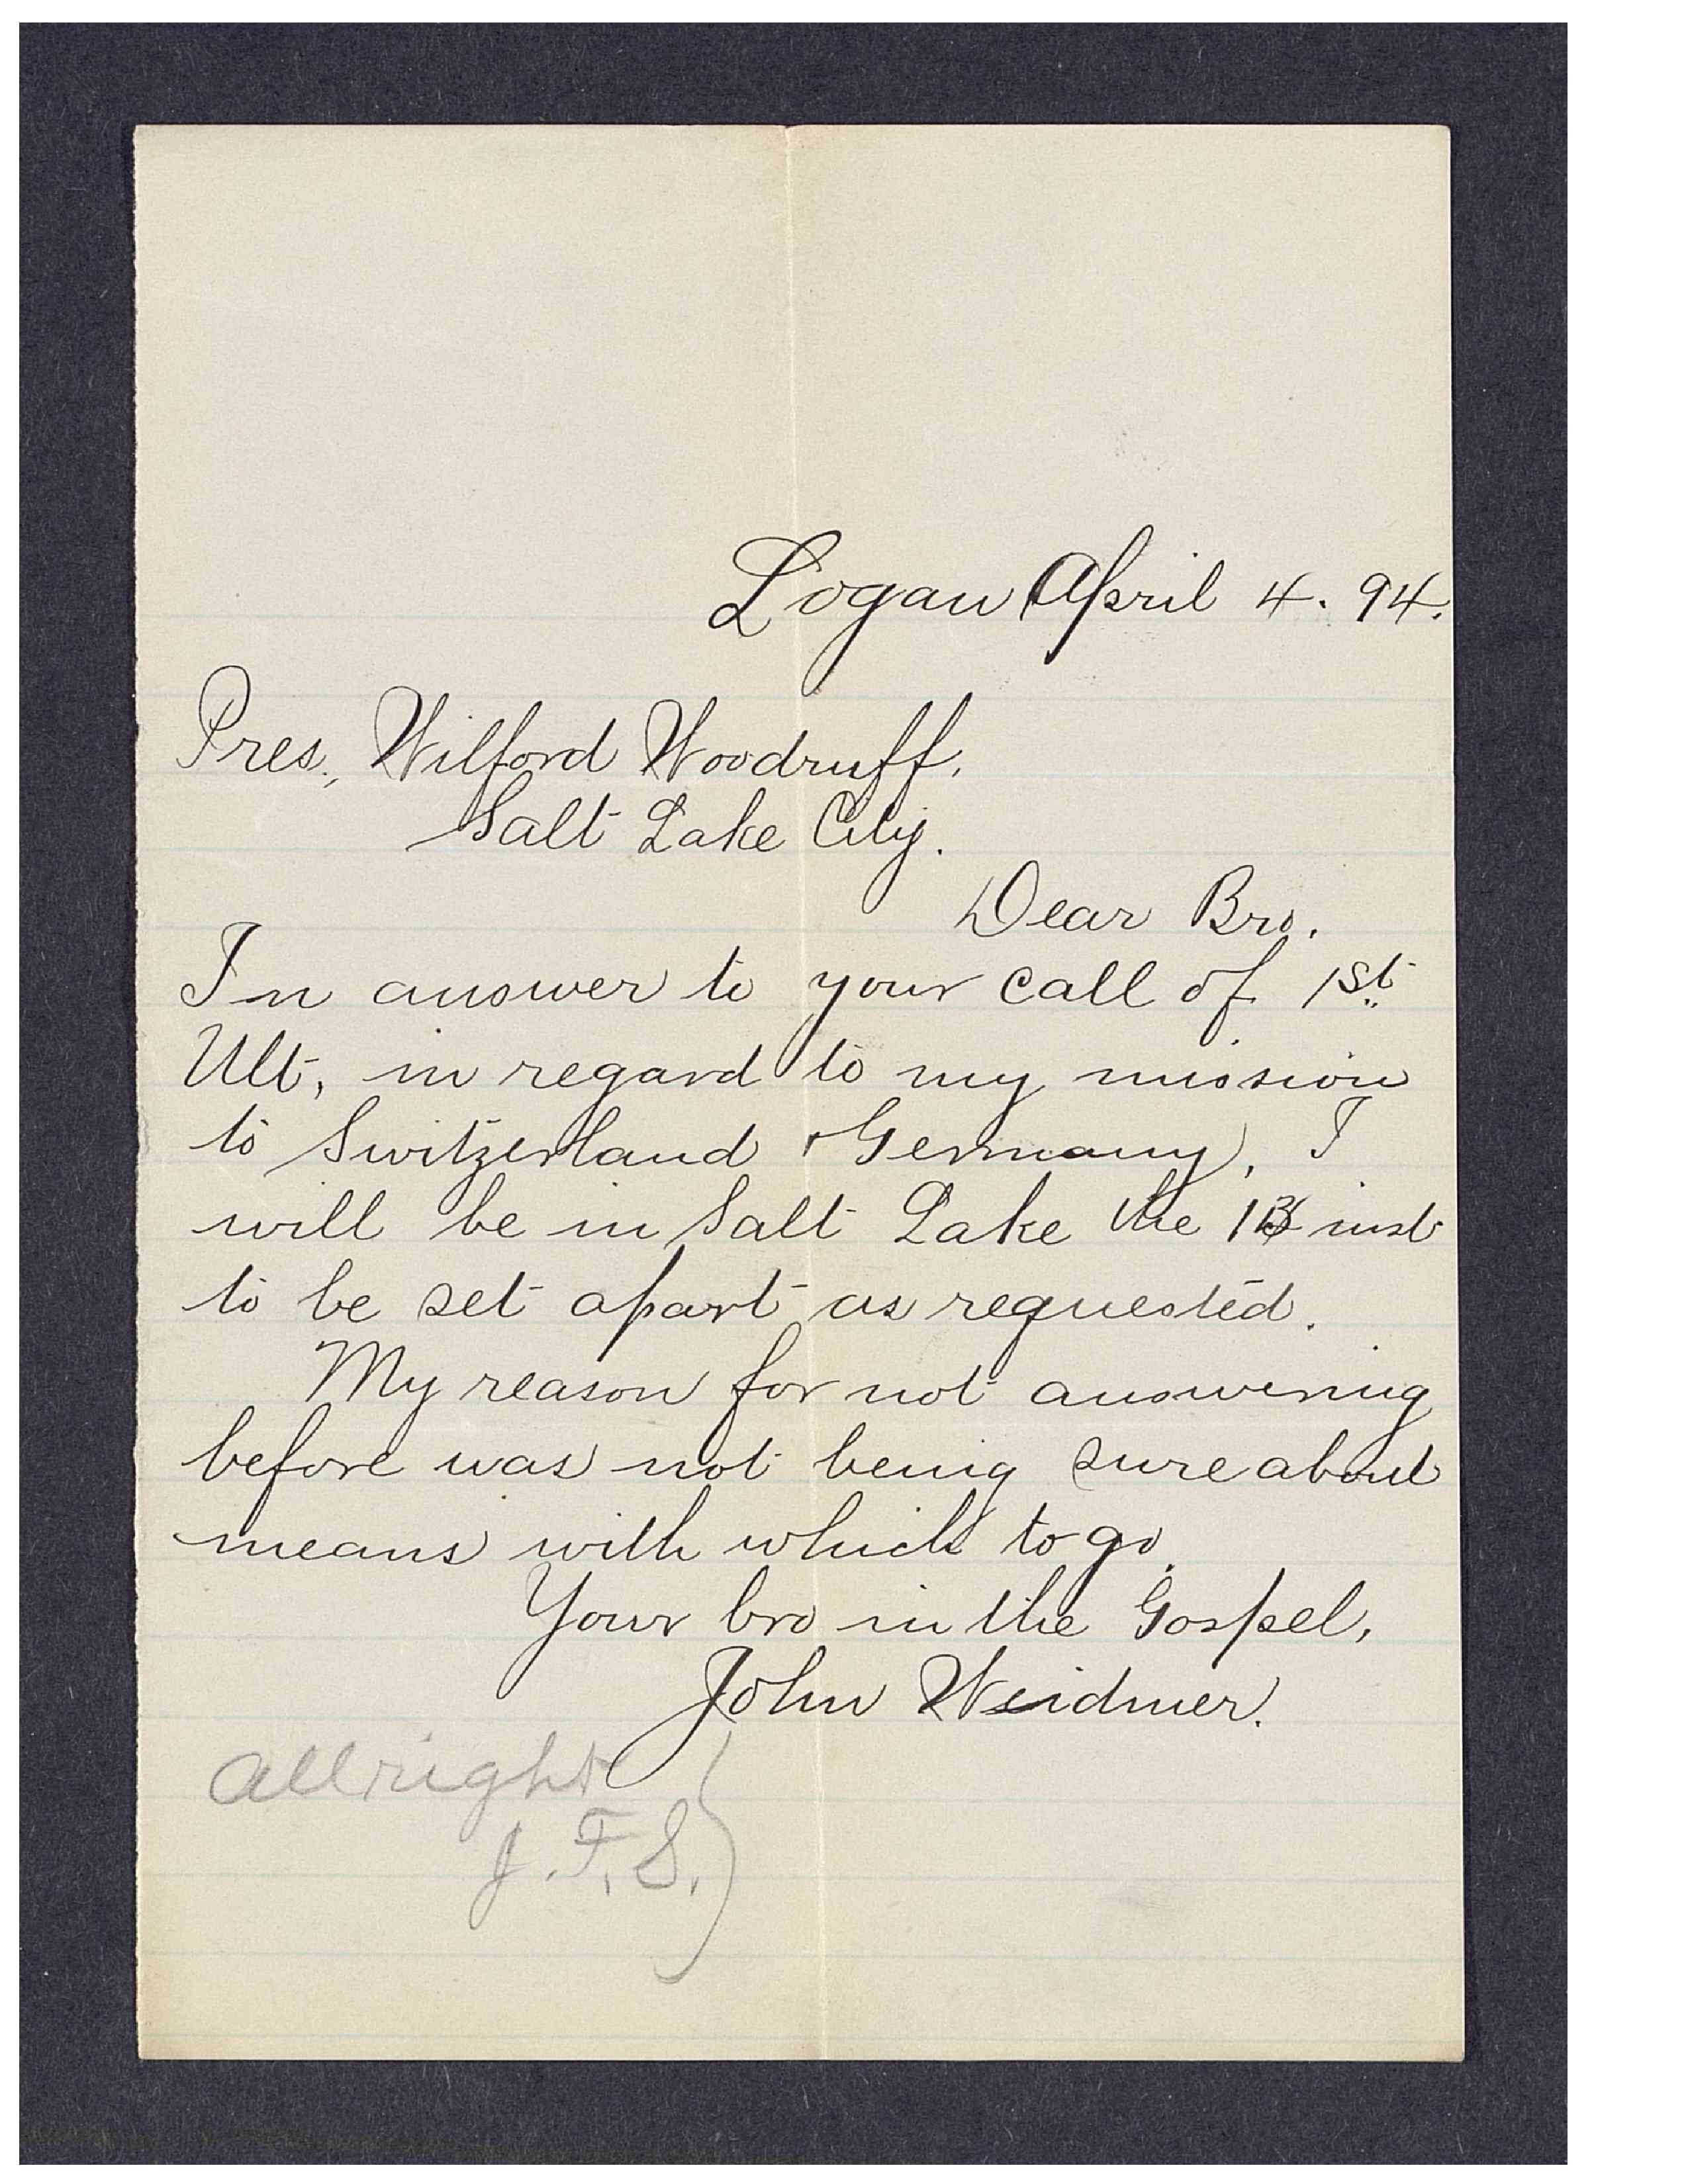 Logan April 4. 94.
Pres., Wilford Woodruff.
Salt Lake City.
Dear Bro.
In answer to your call of 1st
Ult, in regard to my mission
to Switzerland & Germany, I
will be in Salt Lake the inst
to be set apart as requested.
My reason for not answering
before was not being sure about
means with which to go.
Your bro in the Gospel,
John Weidmer.
allright
J. F. S.